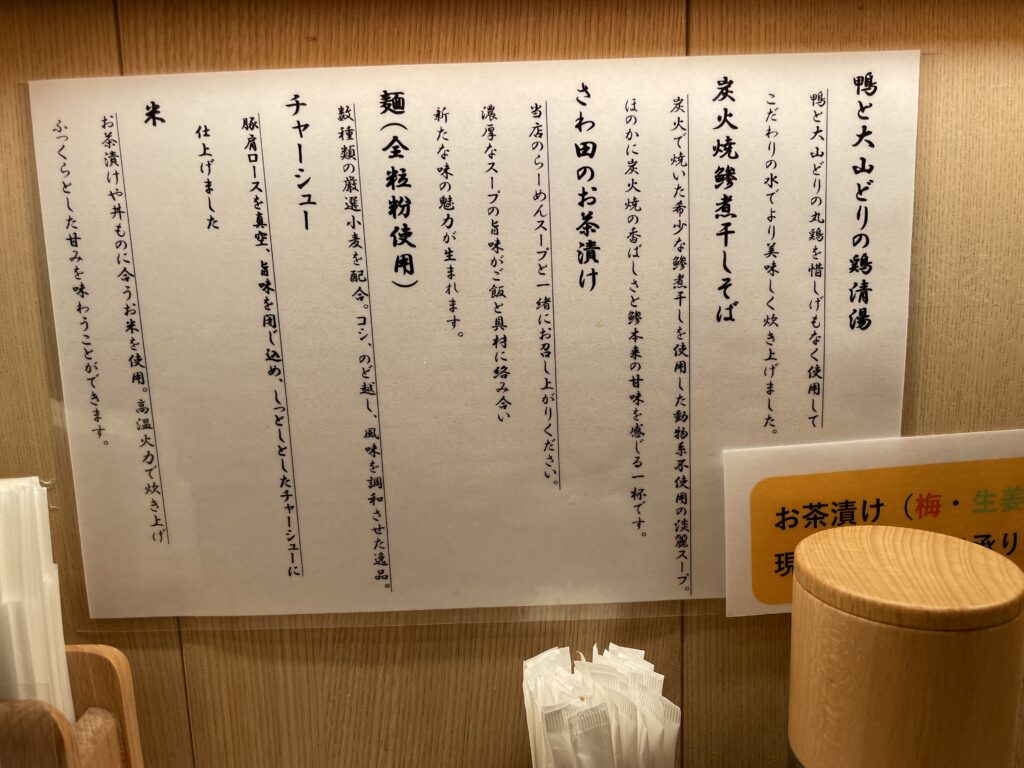 鴨と大山どりの鶏清湯
鴨と大山どりの丸鶏を惜しげもなく使用して
こだわりの水でより美味しく炊き上げました。
炭火焼鯵煮干しそば
炭火で焼いた希少な鯵煮干しを使用した動物系不使用の淡麗スープ。
ほのかに炭火焼の香ばしさと鯵本来の甘味を感じる一杯です。
さわ田のお茶漬け
当店のらーめんスープと一緒にお召し上がりください。
濃厚なスープの旨味がご飯と具材に絡み合い
新たな味の魅力が生まれます。
麺(全粒粉使用)
数種類の厳選小麦を配合。コシ、のど越し、風味を調和させた逸品。
チャーシュー
豚肩ロースを真空、旨味を閉じ込め、しっとしとしたチャーシューに
仕上げました
米
お茶漬けや丼ものに合うお米を使用。高温火力で炊き上げ
ふっくらとした甘みを味わうことができます。
お茶漬け(梅・生姜
現
承り